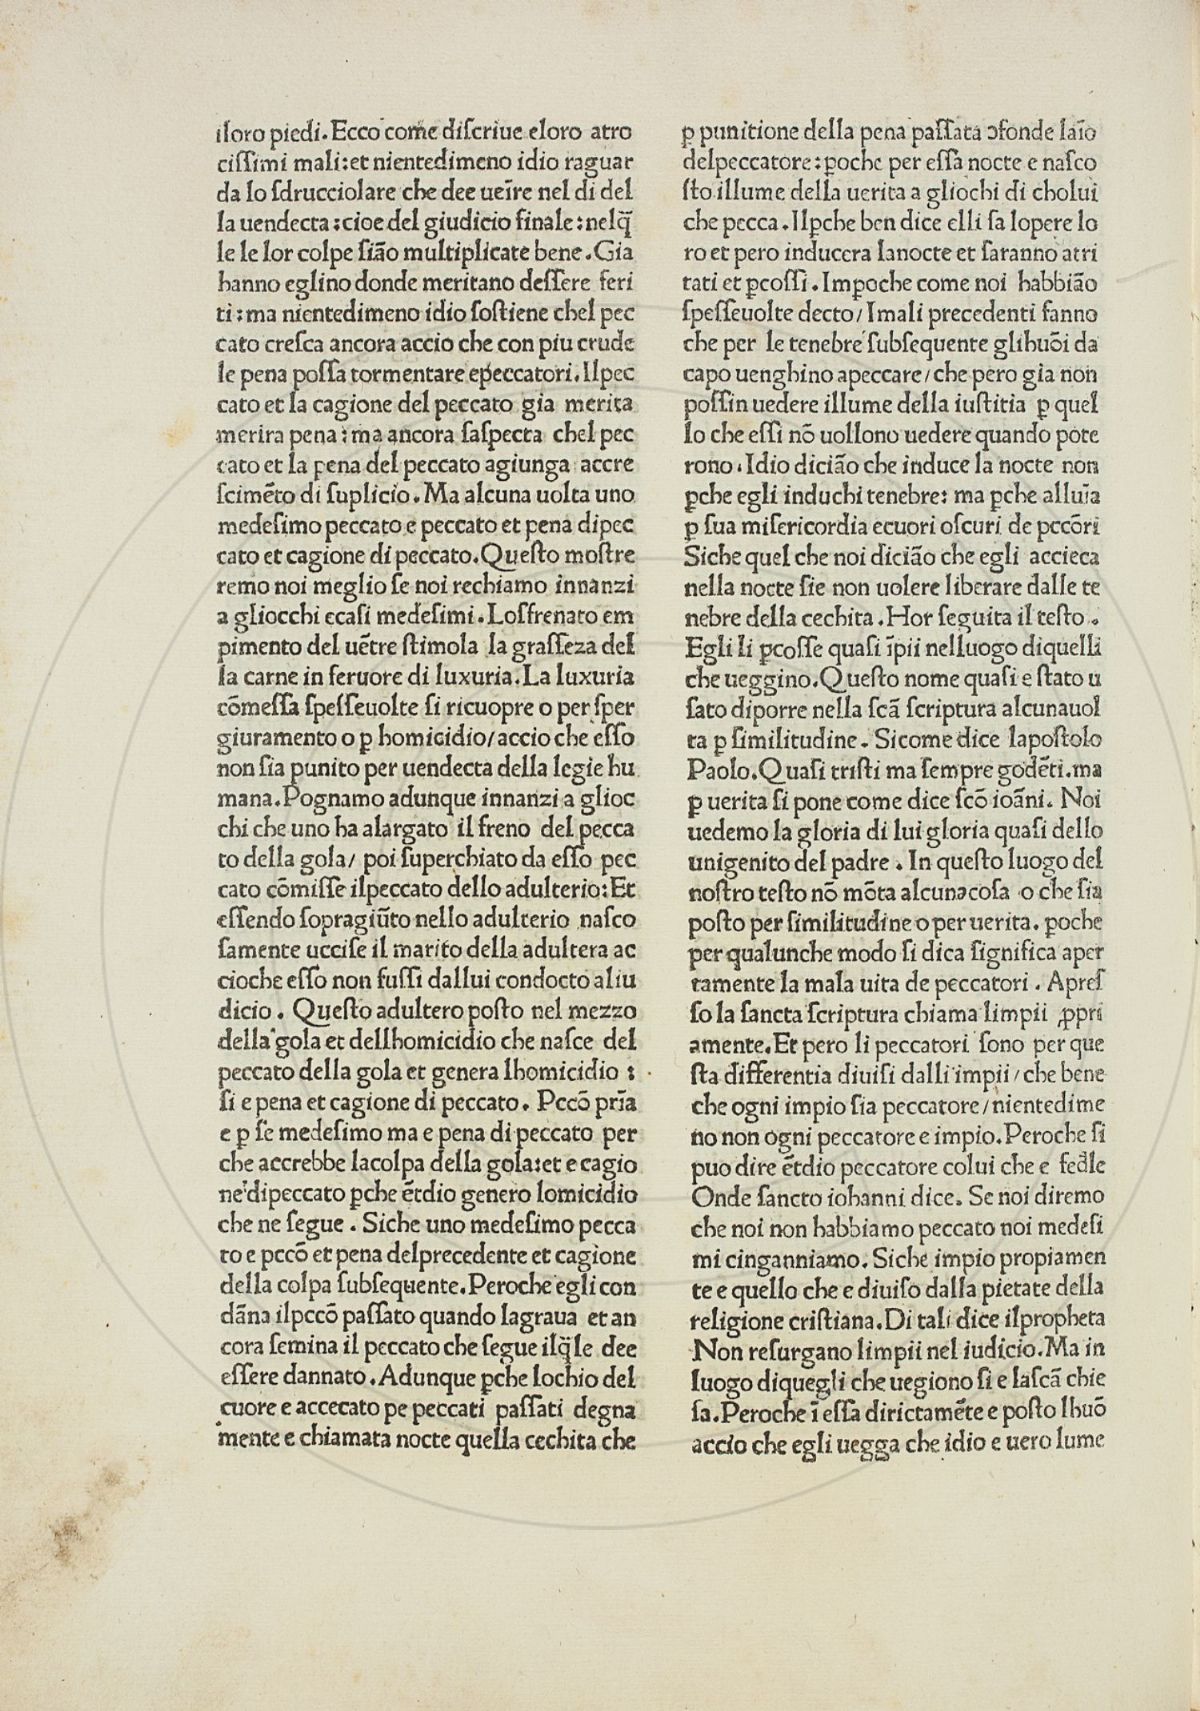 iloro piedi. Ecco come diſcriue eloro atro
ciſſimi mali: et nientedimeno idio raguar
da lo ſdrucciolare che dee uēīre nel di del
la uendecta: cioe del giudicio finale: nelq̄
le le lor colpe ſiāo multiplicate bene. Gia
hanno eglino donde meritano deſſere feri
ti: ma nientedimeno idio ſoſtiene chel pec
cato creſca ancora accio che con piu crude
le pena poſſa tormentare epeccatori. Ilpec
cato et la cagione del peccato gia merita
merira pena: ma ancora ſaſpecta chel pec
cato et la pena del peccato agiunga accre
ſcimēto di ſuplicio. Ma alcuna uolta uno
medeſimo peccato e peccato et pena dipec
cato et cagione di peccato. Queſto moſtre
remo noi meglio ſe noi rechiamo innanzi
a gliocchi ecaſi medeſimi. Loſfrenato em
pimento del uētre ſtimola la graſſeza del
la carne in feruore di luxuria. La luxuria
cōmeſſa ſpeſſeuolte ſi ricuopre o per ſper
giuramento o ꝑ homicidio/ accio che eſſo
non ſia punito per uendecta della legie hu
mana. Pognamo adunque innanzi a glioc
chi che uno ha alargato il freno del pecca
to della gola/ poi ſuperchiato da eſſo pec
cato cōmiſſe ilpeccato dello adulterio: Et
eſſendo ſopragiūto nello adulterio naſco
ſamente ucciſe il marito della adultera ac
cioche eſſo non fuſſi dallui condocto aliu
dicio. Queſto adultero poſto nel mezzo
della gola et dellhomicidio che naſce del
peccato della gola et genera lhomicidio :
ſi e pena et cagione di peccato. Pccō prīa
e ꝑ ſe medeſimo ma e pena di peccato per
che accrebbe lacolpa della gola: et e cagio
ne dipeccato ꝑche ētdio genero lomicidio
che ne ſegue. Siche uno medeſimo pecca
to e pccō et pena delprecedente et cagione
della colpa ſubſequente. Peroche egli con
dāna ilpccō paſſato quando lagraua et an
cora ſemina il peccato che ſegue ilq̄le dee
eſſere dannato. Adunque ꝑche lochio del
cuore e accecato pe peccati paſſati degna
mente e chiamata nocte quella cechita che
ꝑ punitione della pena paſſata ↄfonde laīo
delpeccatore: ꝑoche per eſſa nocte e naſco
ſto illume della uerita a gliochi di cholui
che pecca. Ilꝑche ben dice elli ſa lopere lo
ro et pero inducera lanocte et ſaranno atri
tati et ꝑcoſſi. Imꝑoche come noi habbiāo
ſpeſſeuolte decto/ Imali precedenti fanno
che per le tenebre ſubſequente glihuōi da
capo uenghino apeccare/ che pero gia non
poſſin uedere illume della iuſtitia ꝑ quel
lo che eſſi nō uollono uedere quando pote
rono. Idio diciāo che induce la nocte non
ꝑche egli induchi tenebre: ma ꝑche alluīa
ꝑ ſua miſericordia ecuori oſcuri de pccōri
Siche quel che noi diciāo che egli accieca
nella nocte ſie non uolere liberare dalle te
nebre della cechita. Hor ſeguita il teſto.
Egli li ꝑcoſſe quaſi īpii nelluogo diquelli
che ueggino. Queſto nome quaſi e ſtato u
ſato diporre nella ſcā ſcriptura alcunauol
ta ꝑ ſimilitudine. Sicome dice lapoſtolo
Paolo. Quaſi triſti ma ſempre godēti. ma
ꝑ uerita ſi pone come dice ſcō ioāni. Noi
uedemo la gloria di lui gloria quaſi dello
unigenito del padre. In queſto luogo del
noſtro teſto nō mōta alcunacoſa o che ſia
poſto per ſimilitudine o per uerita. ꝑoche
per qualunche modo ſi dica ſignifica aper
tamente la mala uita de peccatori. Apreſ
ſo la ſancta ſcriptura chiama limpii ꝓpri
amente. Et pero li peccatori ſono per que
ſta differentia diuiſi dalli impii/ che bene
che ogni impio ſia peccatore/ nientedime
no non ogni peccatore e impio. Peroche ſi
puo dire ētdio peccatore colui che e fedle
Onde ſancto iohanni dice. Se noi diremo
che noi non habbiamo peccato noi medeſi
mi cinganniamo. Siche impio propiamen
te e quello che e diuiſo dalla pietate della
religione criſtiana. Di tali dice ilpropheta
Non reſurgano limpii nel iudicio. Ma in
luogo diquegli che uegiono ſi e laſcā chie
ſa. Peroche ī eſſa dirictamēte e poſto lhuō
accio che egli uegga che idio e uero lume